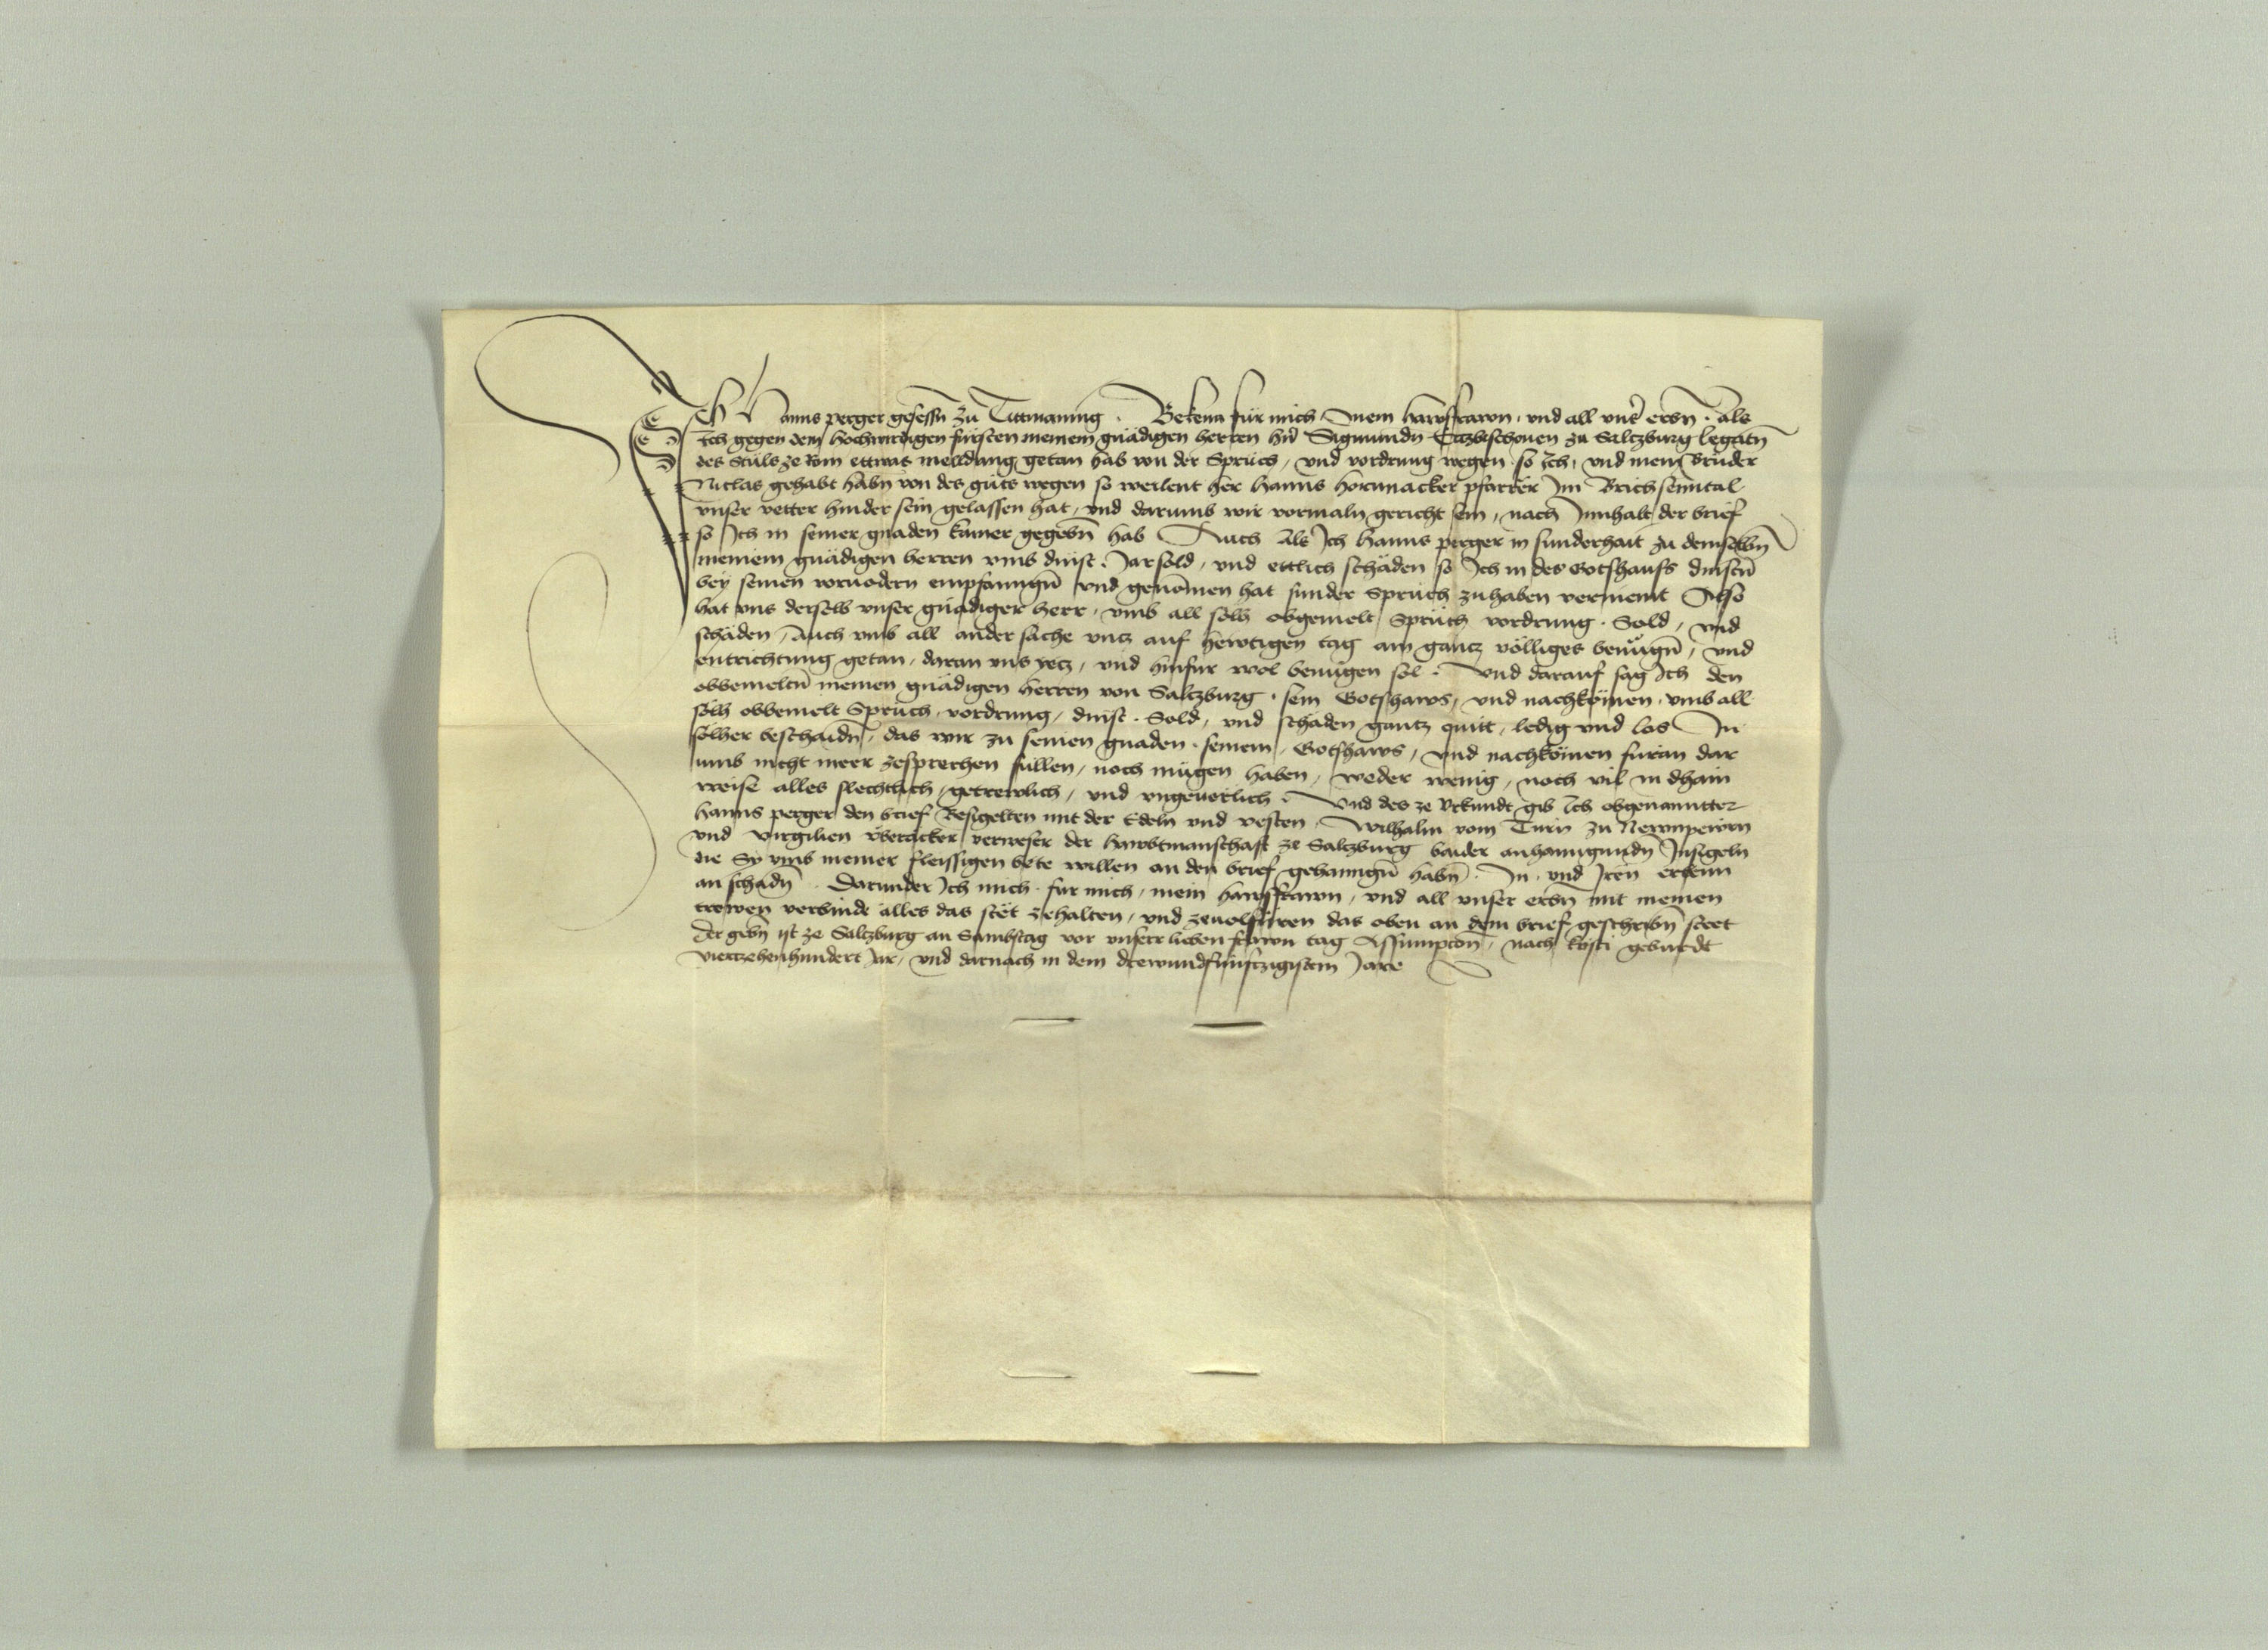 Ich Hanns perger gesessn zu Titmaning . Bekenn für mich mein hawsfrawn , und all unsr erbn . Als
Ich gegen dem hochwirdigen fürsten meinem gnädigen herren hrn Sigmundn Ertzbischouen zu Saltzburg legatn
des Stuls ze Rom ettwas melldung getan hab von der Sprüch , und vordrung wegen so Ich , und mein Bruder
Niclas gehabt habn von des guts wegen so weilent her Hanns hornnacker pfarrer Im Brichsenntal
unser vetter hinder sein gelassen hat , und darumb wir vormaln gericht sein , nach Innhalt der brief
so Ich in seiner gnaden kamer gegebn hab Auch Als Ich Hanns perger in sunderhait zu demselbn
meinem gnädigen herren umb dinst . Jarsold , und ettlich schäden so Ich in des Gotshauss dinstn
bey seinen voruodern empfanngn und genomen hat sunder Spruch zuhaben vermeint Also
hat uns derselb unser gnädiger herr , umb all solh obgemelt Sprüch vordrung . Sold , und
schäden , Auch umb all annder sache untz auf hewtigen tag ain gantz völligs benügn , und
entrichtung getan , daran uns yetz , und hinfur wol benügen sol . Und darauf sag Ich den
obbemeltn meinen gnädigen herren von Saltzburg . sein Gotshaws , und nachkomen . umb all
solh obbemelt Sprüch , vordrung , dinst . Sold , und schäden gantz quitt , ledig und los In
solher beschaidn , das wir zu seinen gnaden . seinem , Gotshaws , und nachkomen furan dar
umb nicht meer zesprechen sullen , noch mügen haben , weder wenig , noch vil in dhain
weise alles slechtlich , getrewlich , und ungeuerlich . Und des ze Urkundt gib Ich obgenanntter
Hanns perger den brief Besigelten mit der Edeln und vesten . Wilhalm vom Turn zu Newnpewrn
und Virgilien Überacker verweser der hawbtmanschaft ze Saltzburg baider anhanngundn Insigeln
die Sy umb meiner fleissigen bete willen an den brief gehanngn habn . In , und Iren erbenn
an schadn . Darunder Ich mich . fur mich , mein hawsfrawn , und all unser erbn mit meinen
trewen verbinde alles das stët zehalten , und zeuolfüren das oben an dem brief geschribn steet
Der gebn ist ze Saltzburg an Sambstag vor unserr lieben frawn tag Assumpcon , nach kristi geburdt
viertzehenhundert Jar , und darnach in dem drewundfünftzigistem Jare